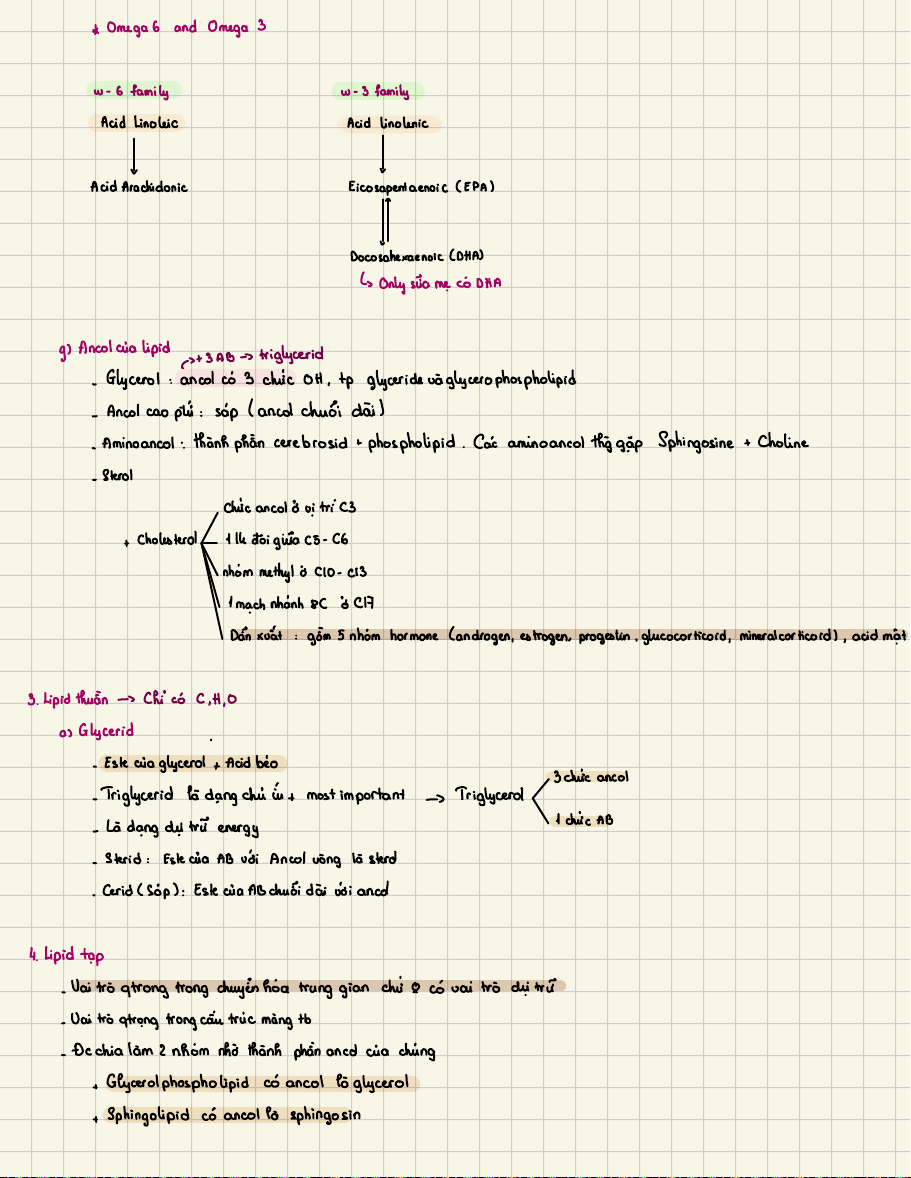 * Omega 6 and Omega 3
w-6 family
w-3 family
Acid Linoleic
Acid linolenic
Acid Arachidonic
Eicosapentaenoic (EPA)
Docosahexaenoic (DHA)
↳ Only sữa mẹ có DHA
g) Ancol của lipid
→ +3 AB → triglycerid
- Glycerol : ancol có 3 chức OH, tp glyceride và glycerophospholipid
- Ancol cao phtử : sáp (ancol chuỗi dài)
- Aminoancol : thành phần cerebrosid + phospholipid. Các aminoancol thg gặp Sphingosine + Choline
- Sterol
+ Cholesterol
Chức ancol ở vị trí C3
1 lk đôi giữa C5-C6
nhóm methyl ở C10-C13
1 mạch nhánh 8C ở C17
Dẫn xuất : gồm 5 nhóm hormone (androgen, estrogen, progestin, glucocorticoid, mineralcorticoid), acid mật
3. Lipid thuần → Chỉ có C,H,O
a) Glycerid
- Este của glycerol + Acid béo
- Triglycerid là dạng chủ + most important → Triglycerol
3 chức ancol
1 chức AB
- Là dạng dự trữ energy
- Sterid : Este của AB với Ancol vòng là sterol
- Cerid (Sáp) : Este của AB chuỗi dài với ancol
4. Lipid tạp
- Vai trò qtrong trong chuyển hóa trung gian chứ 0 có vai trò dự trữ
- Vai trò qtrọng trong cấu trúc màng tb
- Đc chia làm 2 nhóm nhờ thành phần ancol của chúng
+ Glycerolphospholipid có ancol là glycerol
+ Sphingolipid có ancol là sphingosin